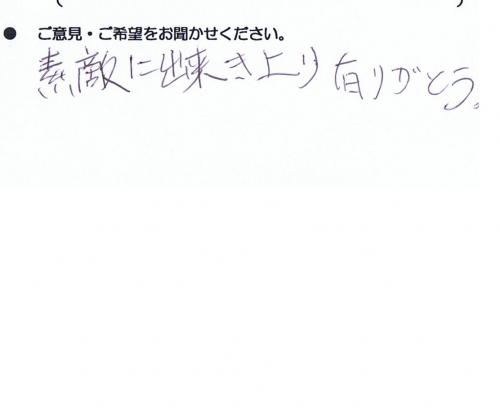 ● ご意見・ご希望をお聞かせください。
素敵に出来き上り 有りがとう。